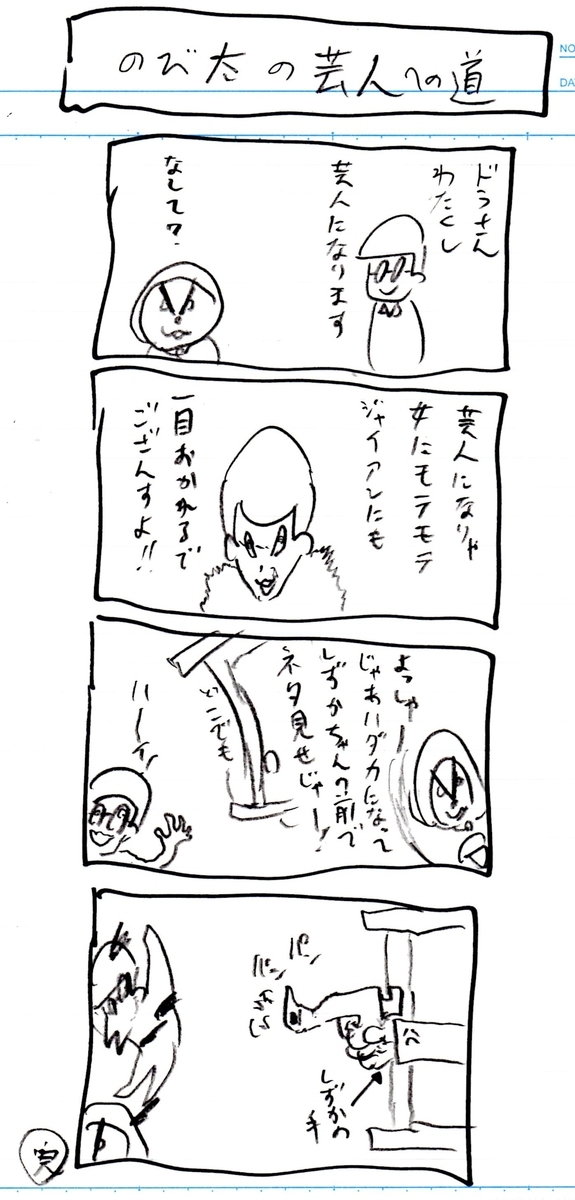 NO
DA
のび太の芸人への道
ドラさん
わたくし
芸人になります
なして?
芸人になりゃ
女にモテモテ
ジャイアンにも
一目おかれるで
ござんすよ!!
よっしゃー
じゃあハダカになって
しずかちゃんの前で
ネタ見せじゃー!
どこでも
ハーイ
パン
パン
しずかの
手